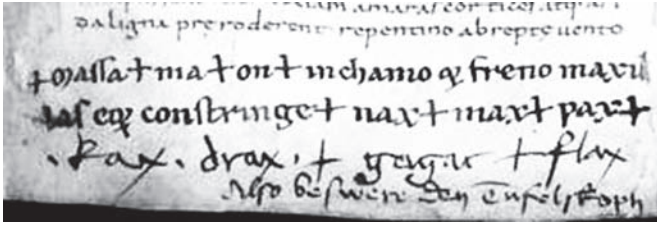 amaras cortices
da ligna preroderent repentino abrepte uento
+ Massa + ma + on + in chamo qꝫ freno maxil
las eqꝫ constringe + nax + max + pax +
. kax . drax . + + flax
Also beswere den tufelskoph